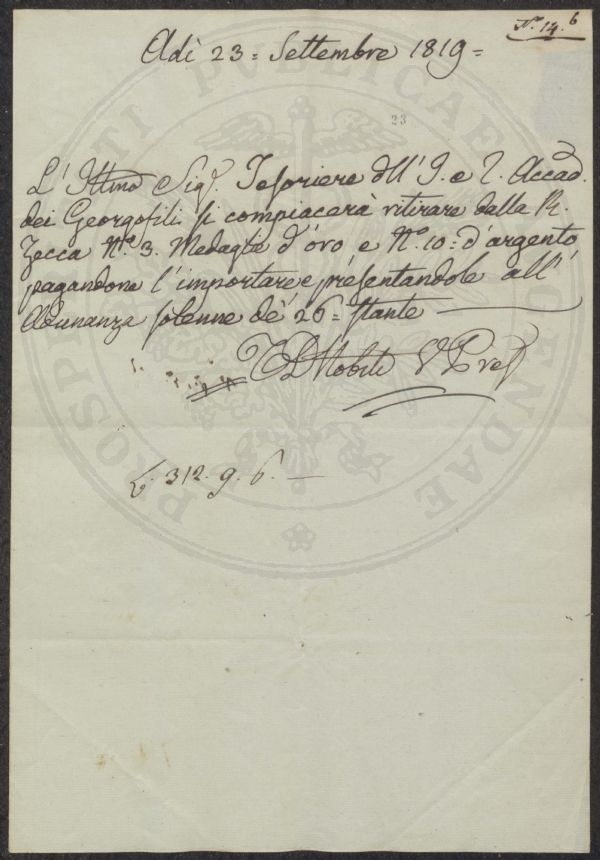 N.º 14. 6
Adì 23 = Settembre 1819 =
23
L'Illmo Sigr. Tesoriere dell' I. e R. Accad.
dei Georgofili si compiacerà ritirare dalla R.
Zecca Nº. 3. Medaglie d'oro e Nº. 10 = d'argento,
pagandone l'importare e presentandole all'
Adunanza solenne de' 26 = stante
Nobili V. Pres
£. 312. 9. 6. —
PROSPERITATI PUBLICAE AUGENDAE